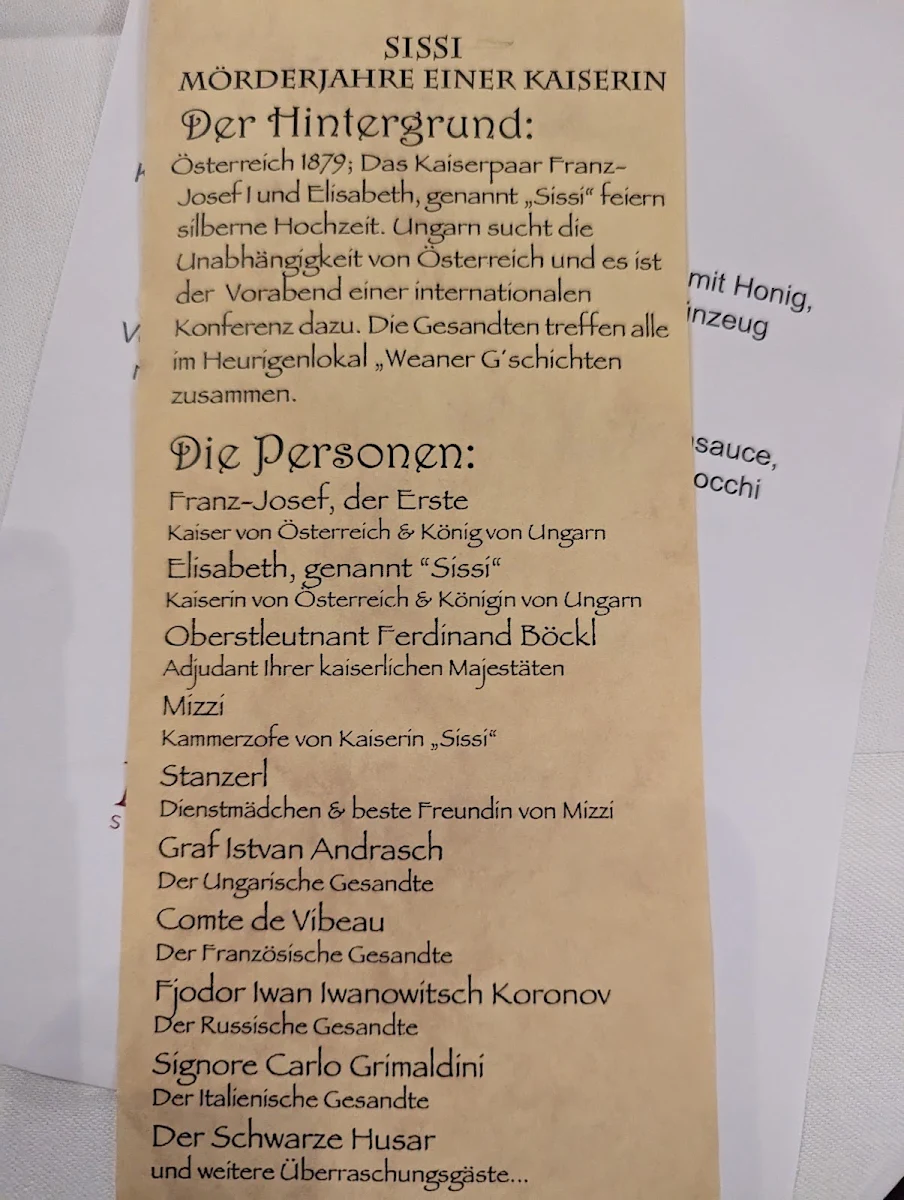 SISSI
MÖRDERJAHRE EINER KAISERIN
Der Hintergrund:
Österreich 1879; Das Kaiserpaar Franz-
Josef I und Elisabeth, genannt „Sissi“ feiern
silberne Hochzeit. Ungarn sucht die
Unabhängigkeit von Österreich und es ist
der Vorabend einer internationalen
Konferenz dazu. Die Gesandten treffen alle
im Heurigenlokal „Weaner G´schichten
zusammen.
mit Honig,
Die Personen:
Franz-Josef, der Erste
Kaiser von Österreich & König von Ungarn
Elisabeth, genannt “Sissi“
Kaiserin von Österreich & Königin von Ungarn
Oberstleutnant Ferdinand Böckl
Adjudant Ihrer kaiserlichen Majestäten
Mizzi
Kammerzofe von Kaiserin „Sissi“
Stanzerl
Dienstmädchen & beste Freundin von Mizzi
Graf Istvan Andrasch
Der Ungarische Gesandte
Comte de Vibeau
Der Französische Gesandte
Fjodor Iwan Iwanowitsch Koronov
Der Russische Gesandte
Signore Carlo Grimaldini
Der Italienische Gesandte
Der Schwarze Husar
und weitere Überraschungsgäste...